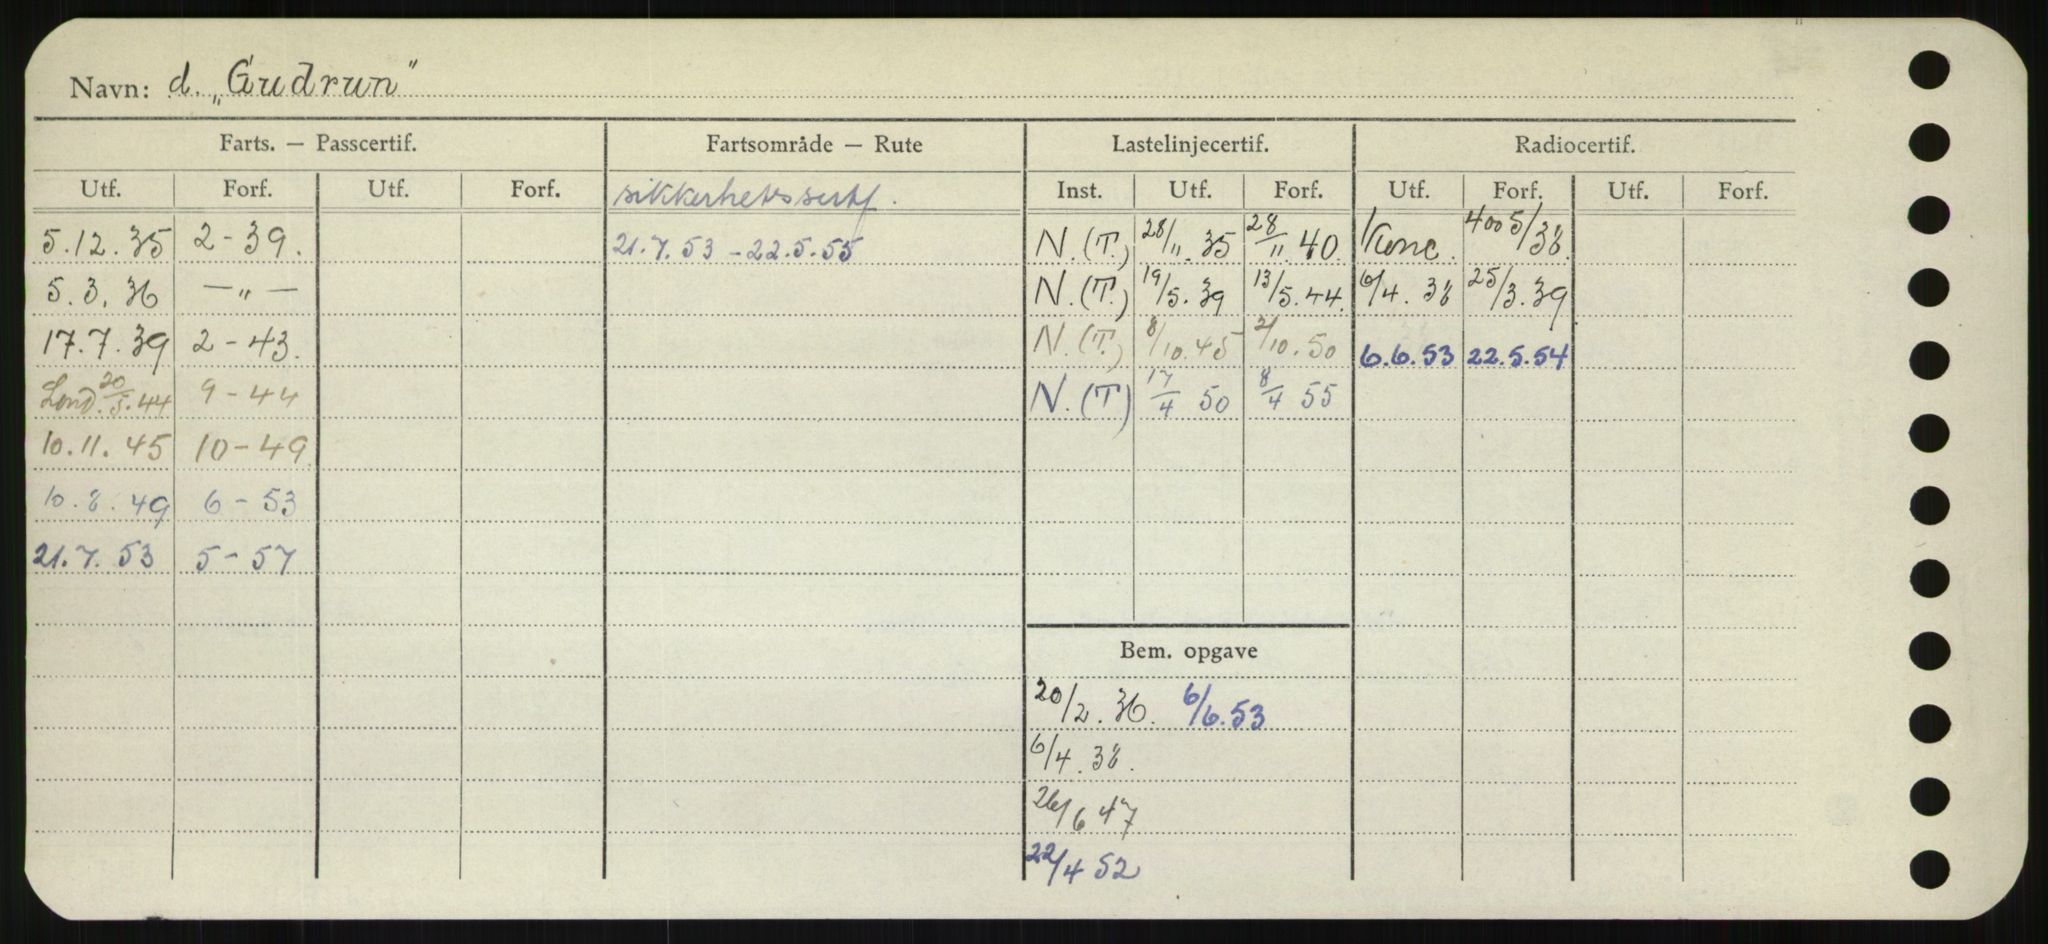 Navn: d. „Gudrun"
Farts. — Passcertif. Fartsområde — Rute Lastelinjecertif. Radiocertif.
Utf. Forf. Utf. Forf. sikkerhetssertf. Inst. Utf. Forf. Utf. Forf. Utf. Forf.
5.12.35 2-39. 21.7.53 - 22.5.55 N.(T.) 28/11.35 28/11.40 Konc. 400 5/38.
5.3.36 —„— N.(T.) 19/5.39 13/5.44. 6/4.38 25/3.39
17.7.39 2-43. N.(T.) 8/10.45 2/10.50 6.6.53 22.5.54
Lond. 20/5.44 9-44 N.(T) 17/4 50 8/4 55
10.11.45 10-49
10.8.49 6-53
21.7.53 5-57
Bem. opgave
20/2.36. 6/6.53
6/4.38.
26/6 47
22/4 52